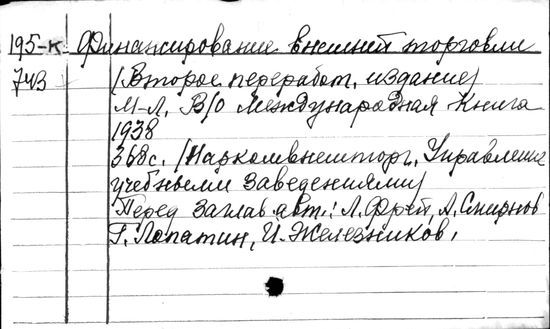 195-К Финансирование внешней торговли
743 (Второе переработ. издание)
М-Л, В/О Международная Книга
1938
368с. (Наркомвнешторг, Управление
учебными заведениями)
Перед заглав. авт.: Л. Фрей, А. Смирнов
Г. Лопатин, И. Железников.